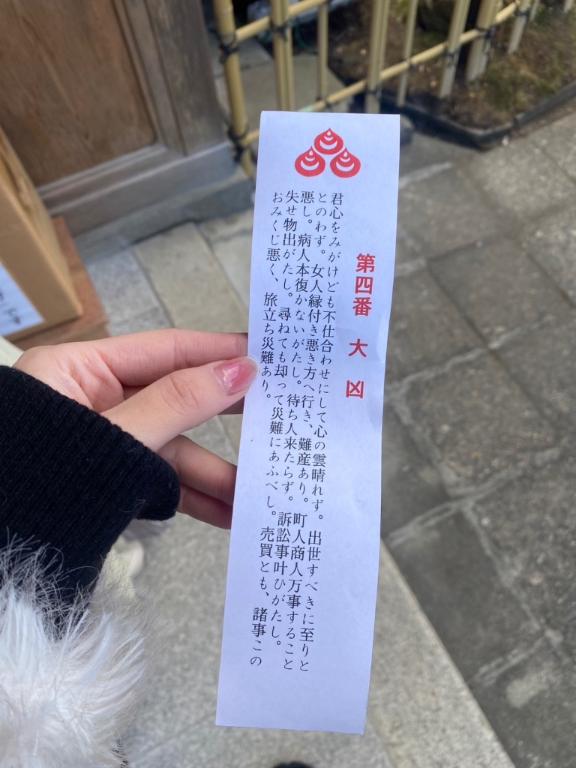 第四番 大凶
君心をみがけども不仕合わせにして心の雲晴れず。出世すべきに至りと
とのわず。女人縁付き悪き方へ行き、難産あり。町人商人万事すること
悪し。病人本復かないがたし。待ち人来たらず。訴訟事叶ひがたし。
失せ物出がたし。尋ねても却って災難にあふべし。売買とも、諸事この
おみくじ悪く、旅立ち災難あり。